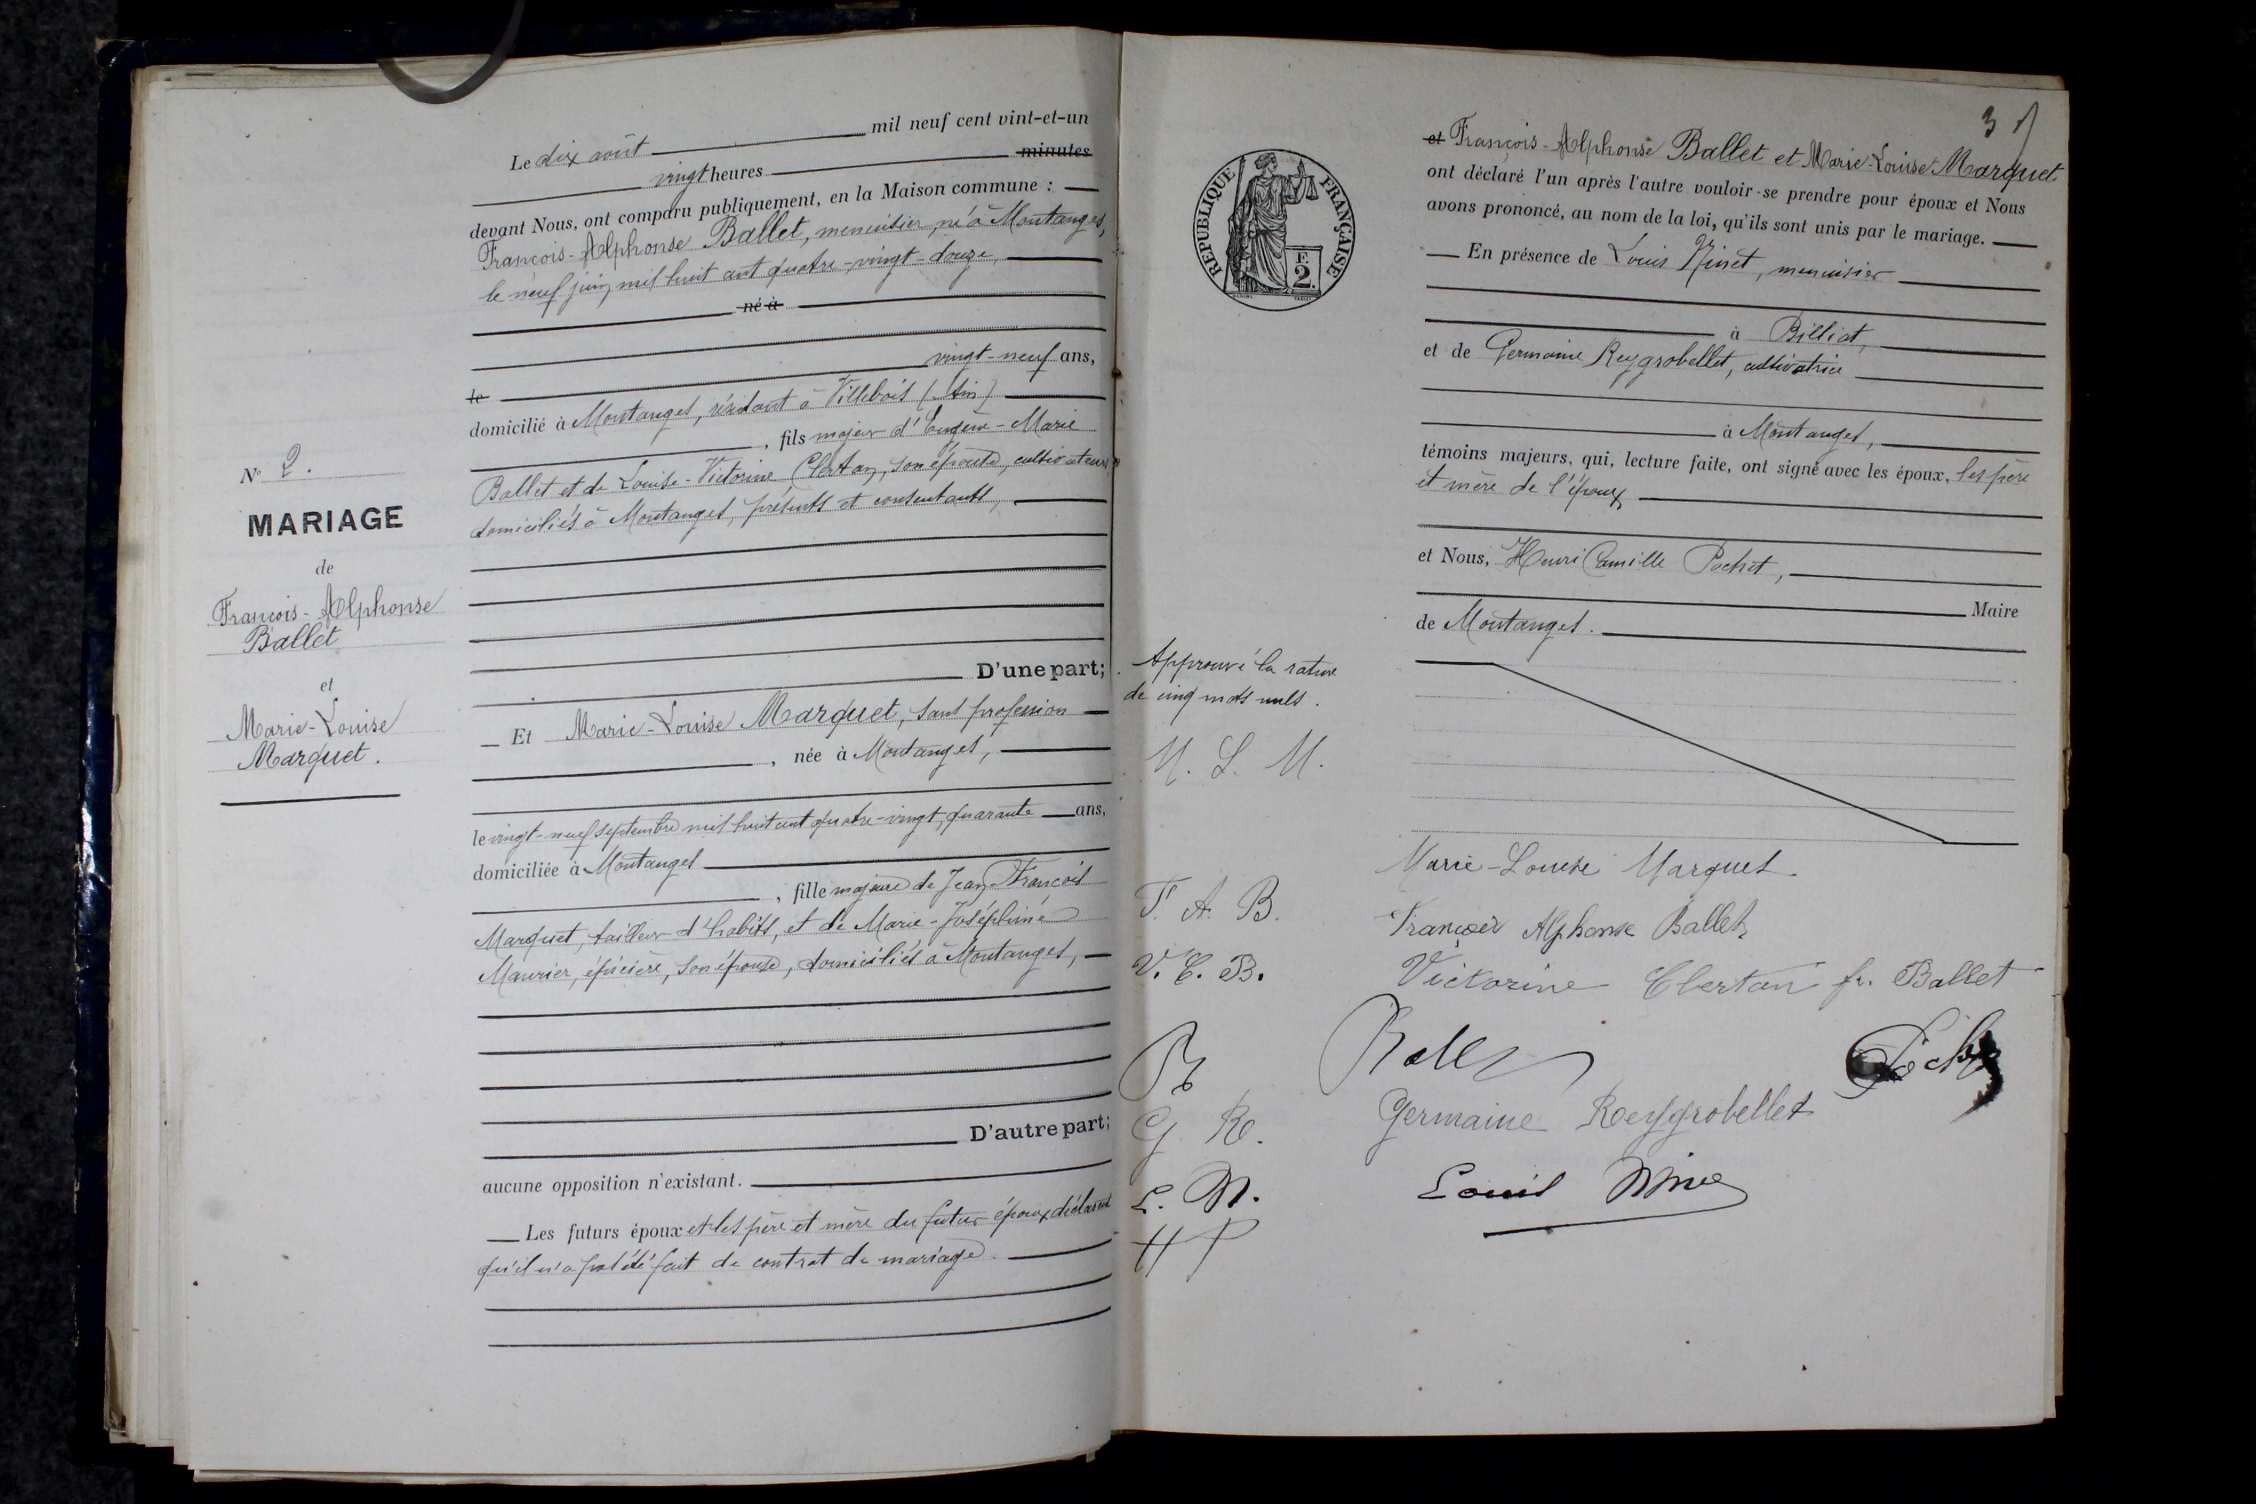 N° 2.
MARIAGE
de
François-Alphonse
Ballet
et
Marie-Louise
Marquet.
Le dix août mil neuf cent vint-et-un
vingt heures minutes
devant Nous, ont comparu publiquement, en la Maison commune :
François-Alphonse Ballet, menuisier, né à Montanges,
le neuf juin mil huit cent quatre-vingt-douze,
né à
vingt-neuf ans,
le
domicilié à Montanges, résidant à Villebois (Ain)
, fils majeur d'Eugène-Marie
Ballet et de Louise-Victorine Clertan, son épouse, cultivateurs,
domiciliés à Montanges, présents et consentants,
D'une part;
Et Marie-Louise Marquet, sans profession
, née à Montanges,
le vingt-neuf septembre mil huit cent quatre-vingt, quarante ans,
domiciliée à Montanges
, fille majeure de Jean-François
Marquet, tailleur d'habits, et de Marie-Joséphine
Maurier, épicière, son épouse, domiciliés à Montanges,
D'autre part;
aucune opposition n'existant.
Les futurs époux et les père et mère du futur époux déclarent
qu'il n'a pas été fait de contrat de mariage.
3
RÉPUBLIQUE FRANÇAISE
F.
2.
et François-Alphonse Ballet et Marie-Louise Marquet
ont déclaré l'un après l'autre vouloir se prendre pour époux et Nous
avons prononcé, au nom de la loi, qu'ils sont unis par le mariage.
En présence de Louis Ninet, menuisier
à Billiat,
et de Germaine Reygrobellet, cultivatrice
à Montanges,
témoins majeurs, qui, lecture faite, ont signé avec les époux, les père
et mère de l'époux
et Nous, Henri Camille Pochet,
Maire
de Montanges.
Approuvé la rature
de cinq mots nuls.
M. L. M.
F. A. B.
V. C. B.
B
G. R.
L. N.
H P
Marie-Louise Marquet
François Alphonse Ballet
Victorine Clertan fe. Ballet
Ballet
Pochet
Germaine Reygrobellet
Louis Ninet